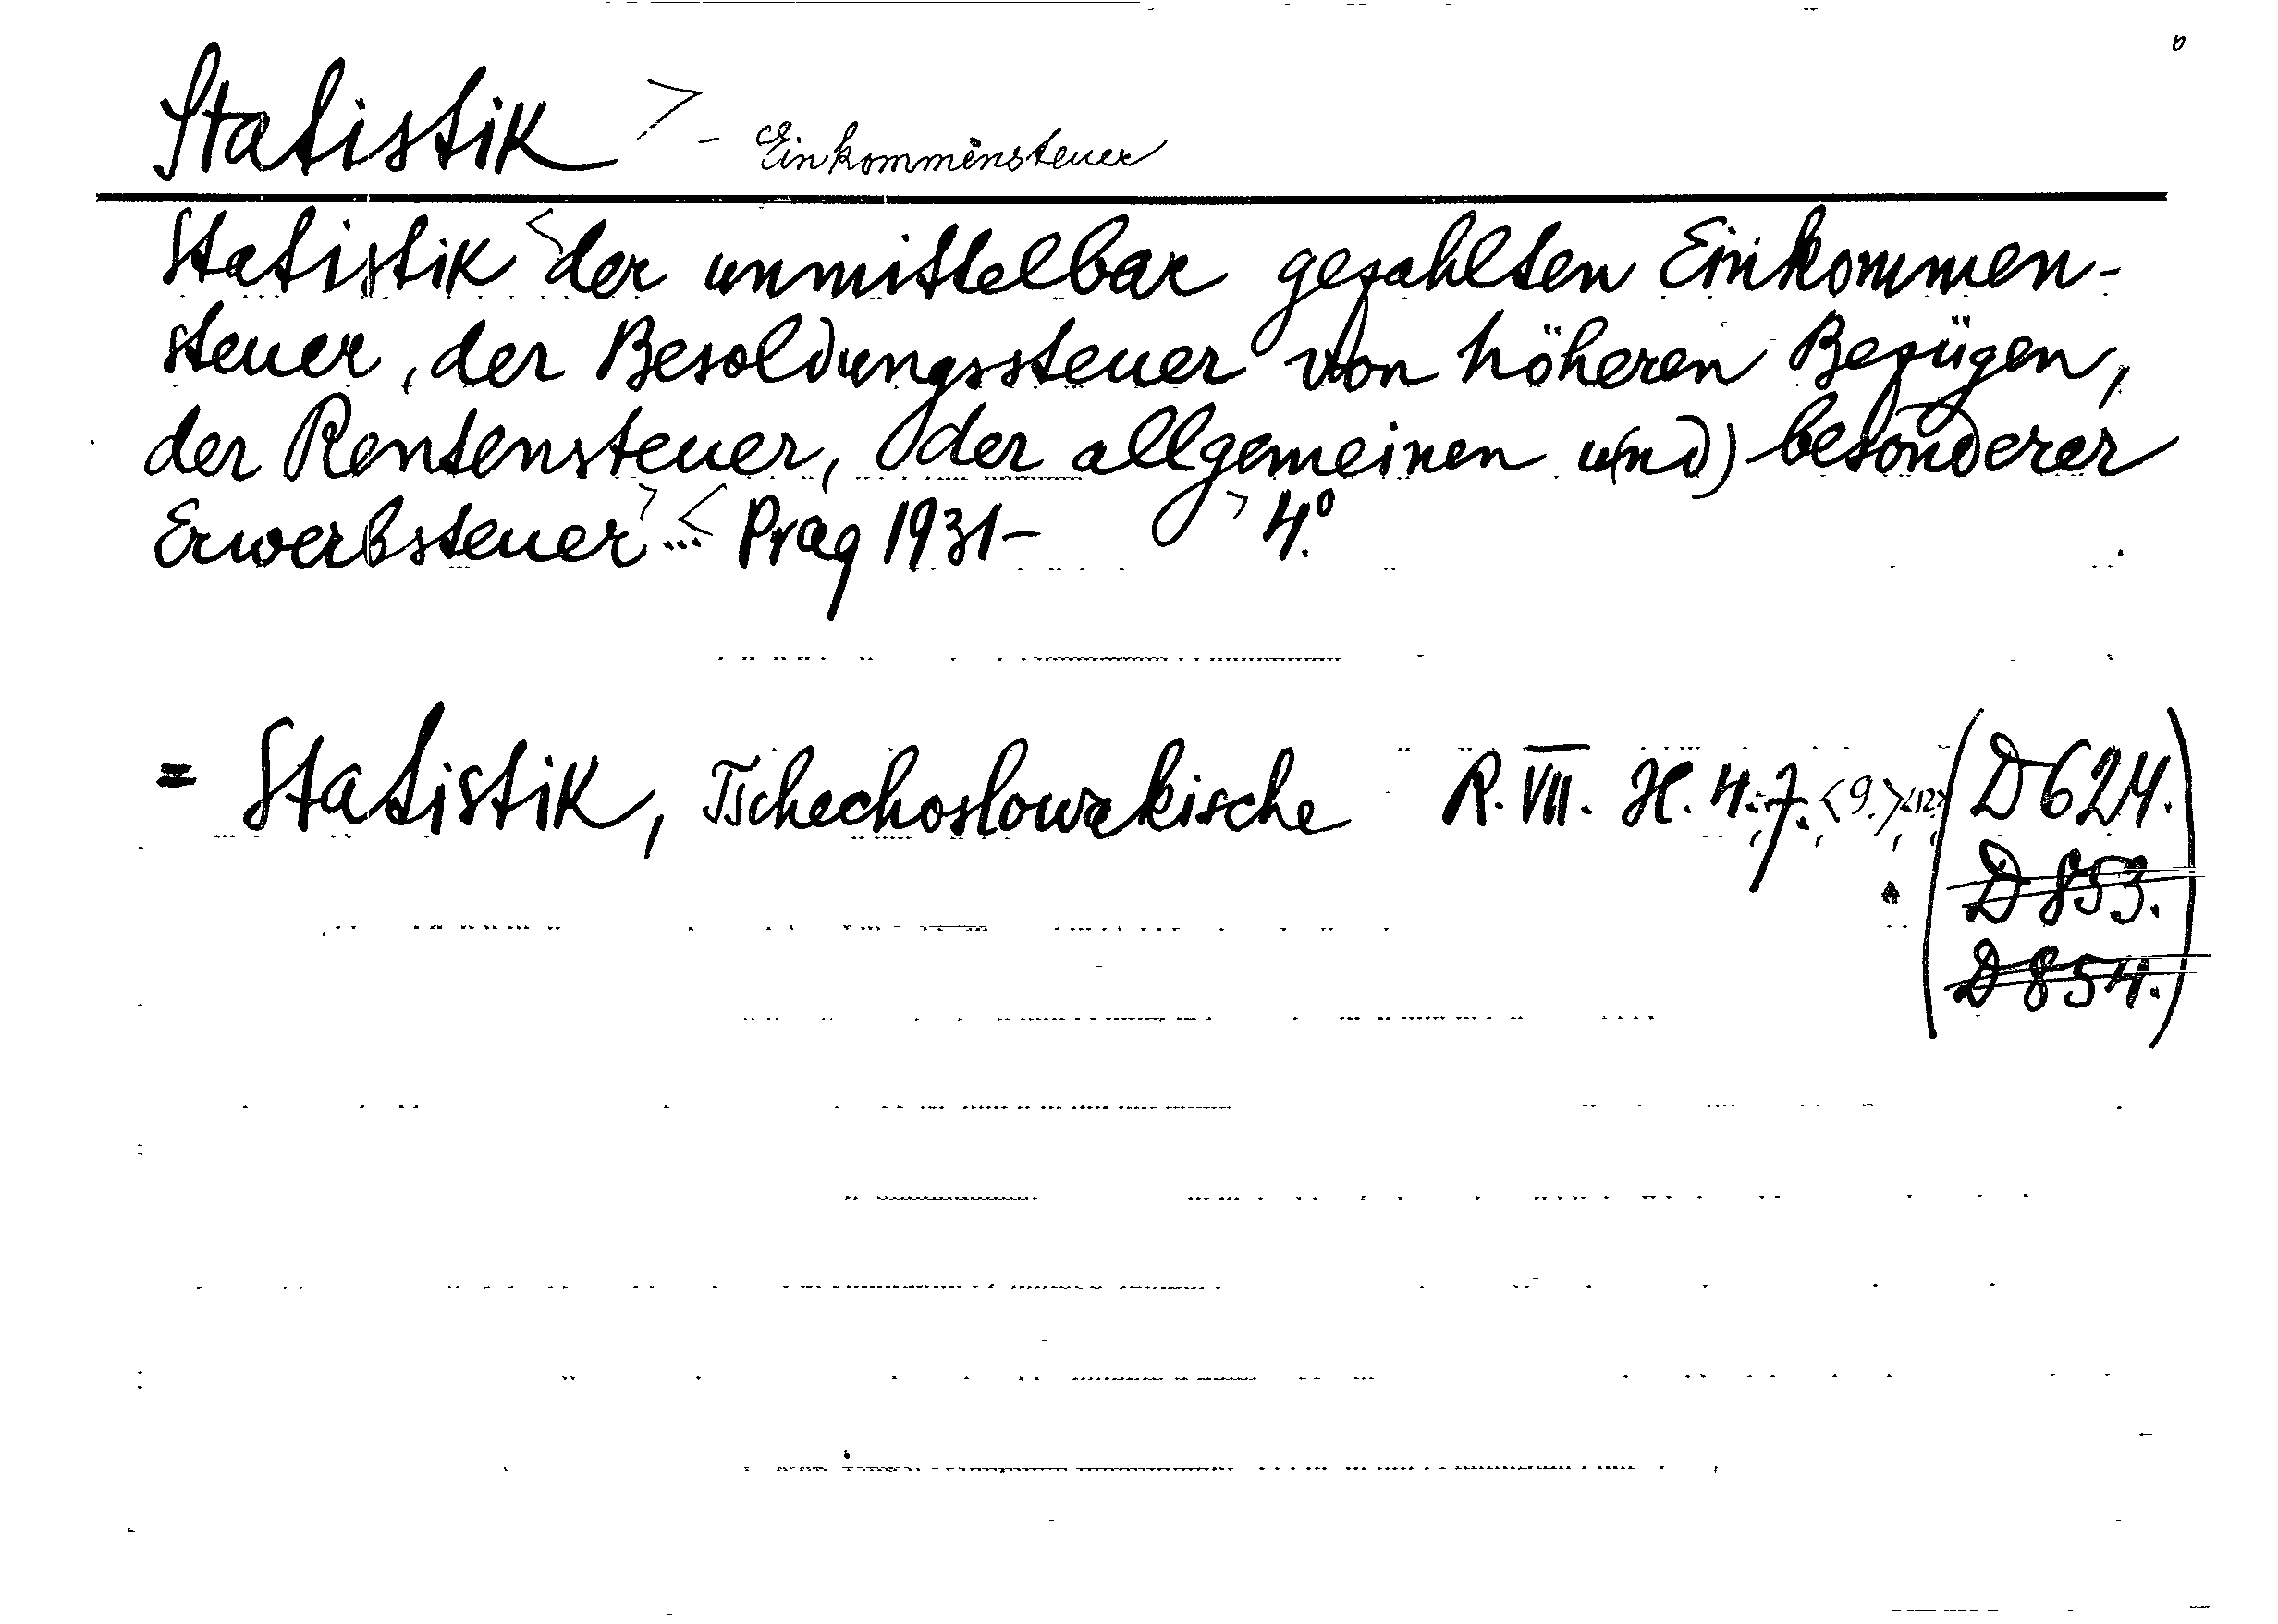 Statistik > - Einkommensteuer
Statistik < der unmittelbar gezahlten Einkommen-
steuer, der Besoldungssteuer von höheren Bezügen,
der Rentensteuer, der allgemeinen u(nd) besonderer
Erwerbsteuer > ... < Prag 1931- > 4°.
= Statistik, Tschechoslowakische R. VII. H. 4.7. <9.> <12> (D 624.
D 853.
D 854.)